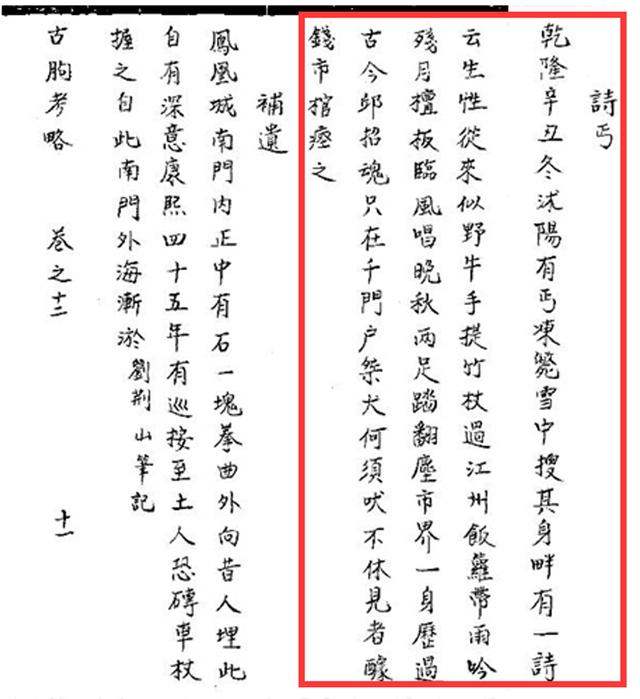 詩丐
乾隆辛丑冬沭陽有丐凍斃雪中搜其身畔有一詩
云生性從來似野牛手提竹杖過江州飯籮帶雨吟
殘月檀板臨風唱晚秋兩足踏翻塵市界一身歷過
古今邱招魂只在千門户桀犬何須吠不休見者醵
錢市棺瘞之
補遺
鳳凰城南門内正中有石一塊拳曲外向昔人埋此
自有深意康熙四十五年有巡按至土人恐磚車杖
握之自此南門外海漸淤劉荆山筆記
古朐考略 卷之十二 十一